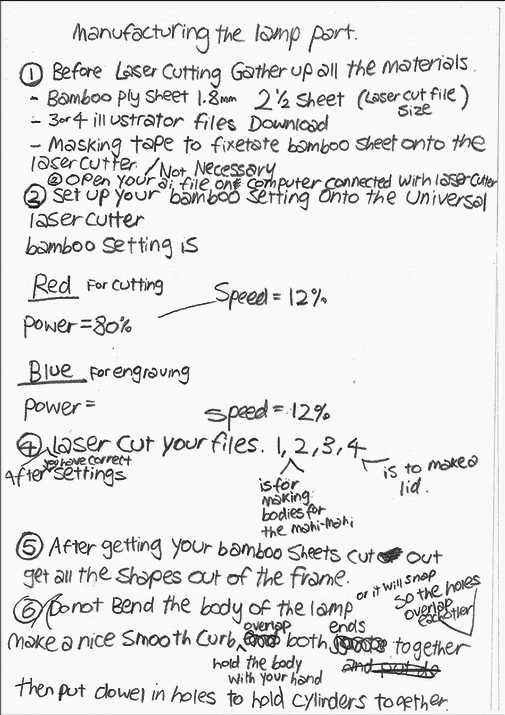 Manufacturing the lamp part.
① Before Laser Cutting Gather up all the Materials.
- Bamboo Ply Sheet 1.8mm 2 ½ Sheet (Laser cut file) Size
- 3 or 4 illustrator files Download
- Masking tape to fixetate bamboo sheet onto the
laser cutter. / Not Necessary
② Open your ai file on computer connected with laser cutter
② Set up your bamboo setting onto the Universal
laser cutter
bamboo setting is
Red For cutting
Speed = 12%
Power = 80%
Blue For engraving
Power =
Speed = 12%
④ laser cut your files. 1, 2, 3, 4
After you have correct settings
is to make a
lid.
is for
making
bodies for
the mahi-mahi
⑤ After getting your bamboo sheets cut out
get all the shapes out of the frame.
⑥ Do not Bend the body of the lamp or it will snap
So the holes
overlap
eachother
make a nice smooth curb, overlap both ends together
hold the body
with your hand
then put dowel in holes to hold cylinders together.